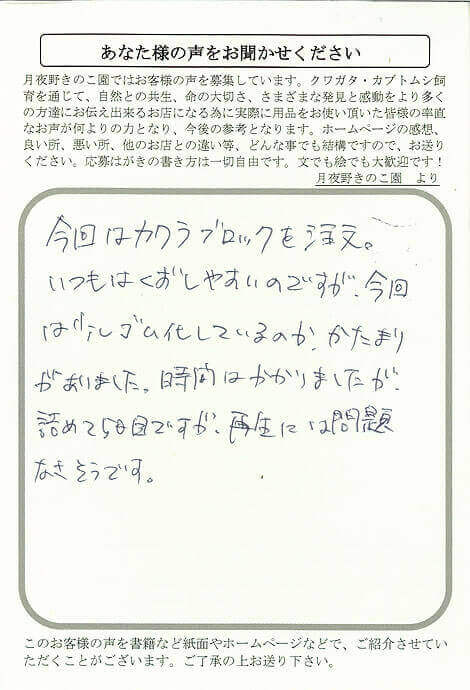 あなた様の声をお聞かせください
月夜野きのこ園ではお客様の声を募集しています。クワガタ・カブトムシ飼
育を通じて、自然との共生、命の大切さ、さまざまな発見と感動をより多く
の方達にお伝え出来るお店になる為に実際に用品をお使い頂いた皆様の率直
なお声が何よりの力となり、今後の参考となります。ホームページの感想、
良い所、悪い所、他のお店との違い等、どんな事でも結構ですので、お送り
ください。応募はがきの書き方は一切自由です。文でも絵でも大歓迎です！
月夜野きのこ園　より
今回はカワラブロックを注文。
いつもはくずしやすいのですが、今回
は 化しているのか、かたまり
がありました。時間はかかりましたが、
詰めて5日目ですが、再生には問題
なさそうです。
このお客様の声を書籍など紙面やホームページなどで、ご紹介させてい
ただくことがございます。ご了承の上お送り下さい。